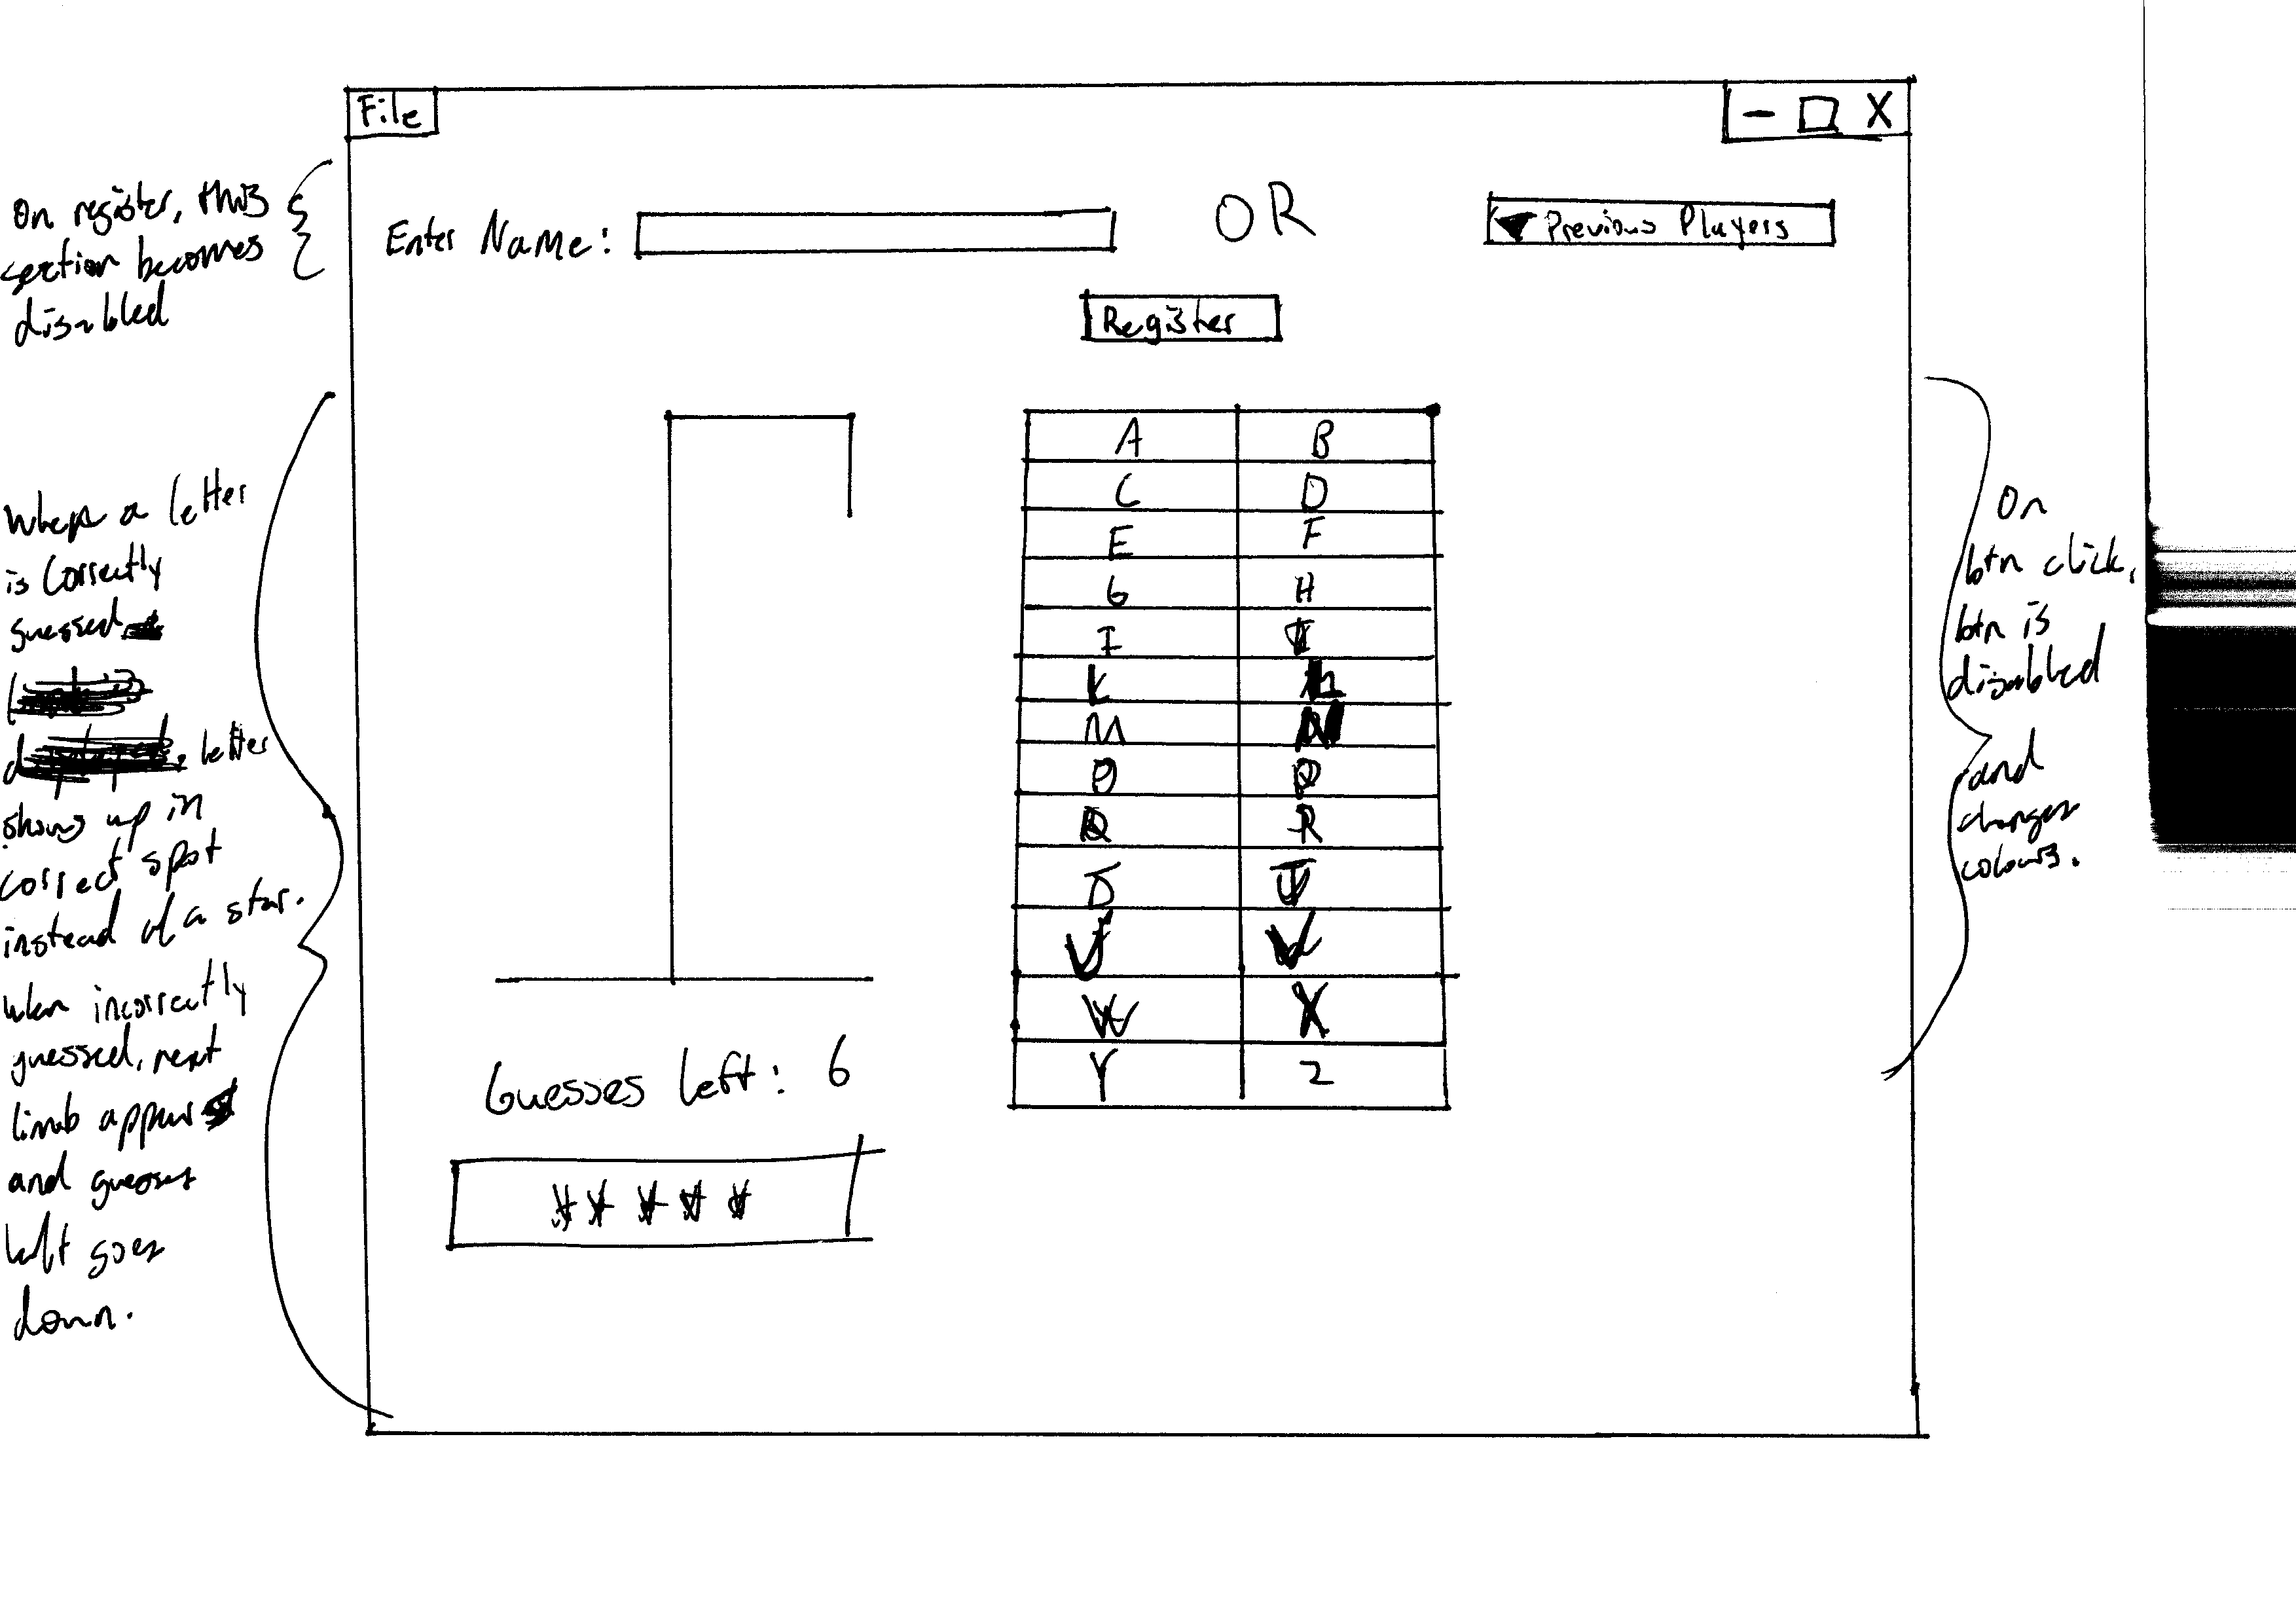 File
- □ X
On register, this
section becomes
disabled
Enter Name:
OR
Previous Players
Register
When a letter
is correctly
guessed
letter
shows up in
correct spot
instead of a star.
when incorrectly
guessed, next
limb appears
and guesses
left goes
down.
A B
C D
E F
G H
I J
K L
M N
O P
Q R
S T
U V
W X
Y Z
Guesses Left: 6
* * * * *
On
btn click,
btn is
disabled
and
changes
colours.